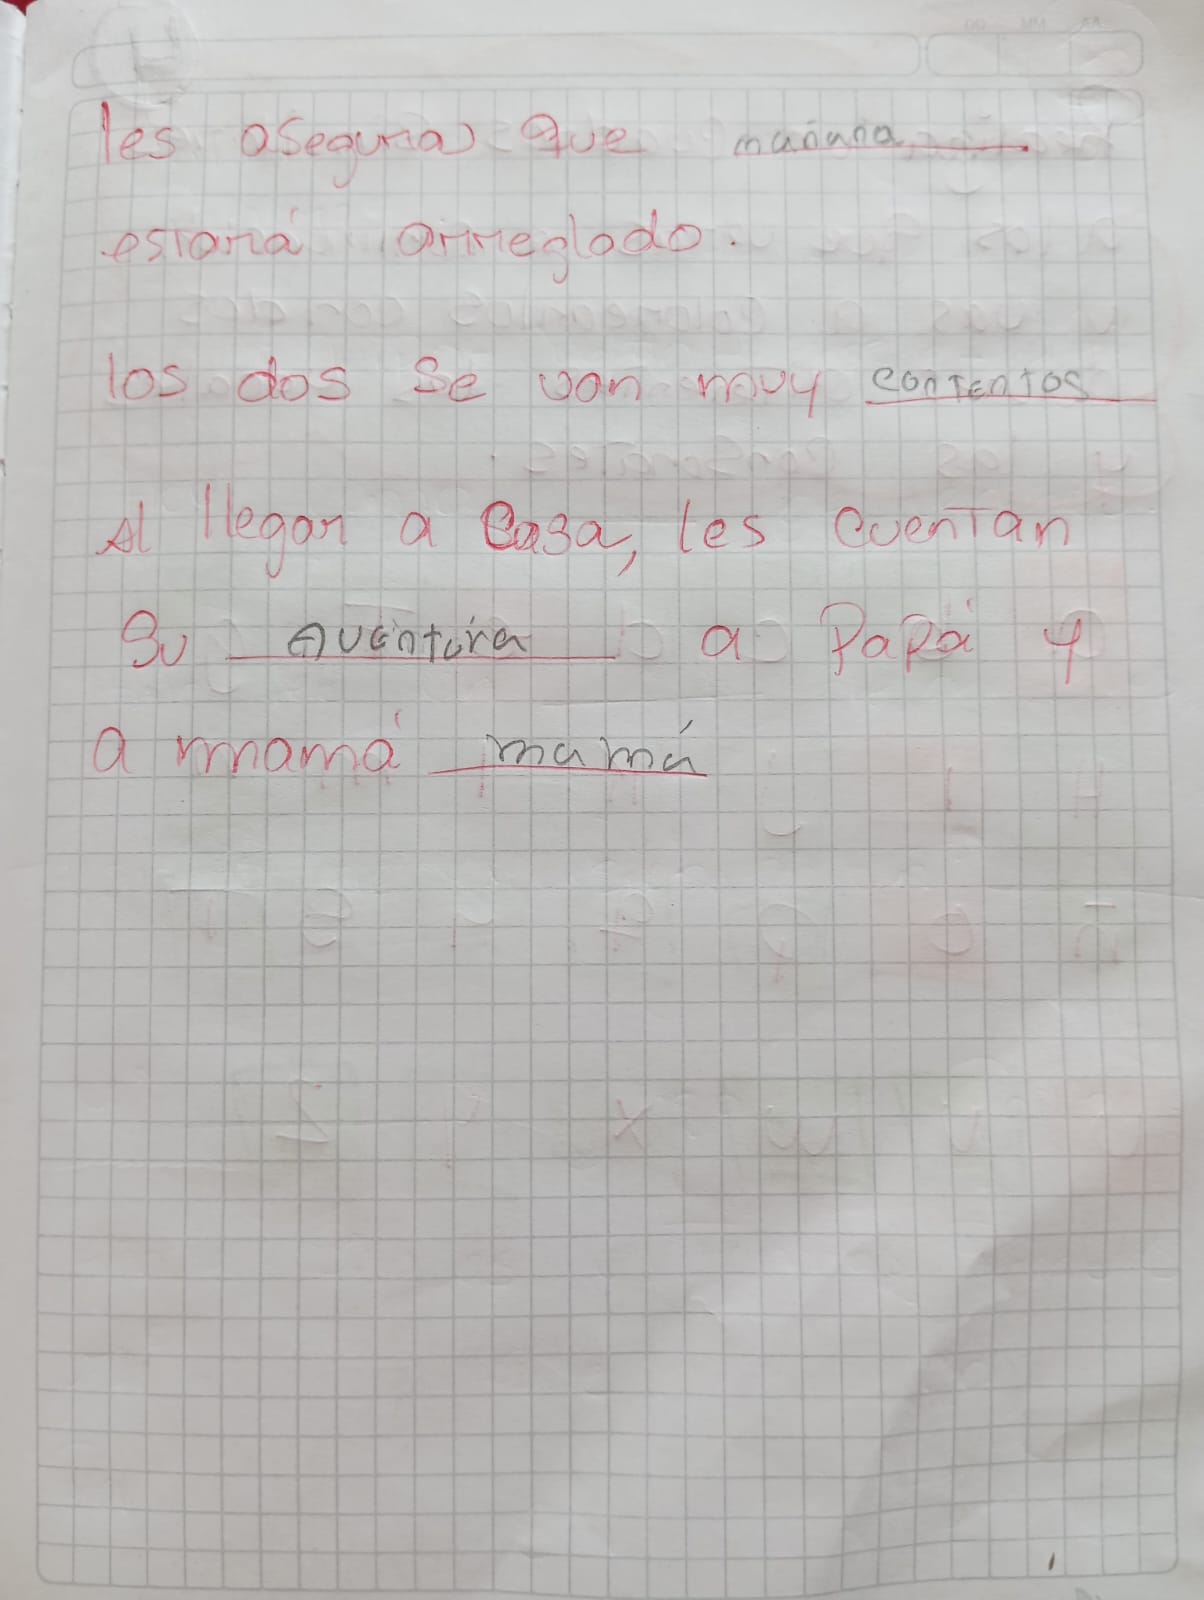 les asegura que mañana
estará arreglado.
los dos se van muy contentos
Al llegar a Casa, les cuentan
Su Aventura a Papá y
a mamá mamá